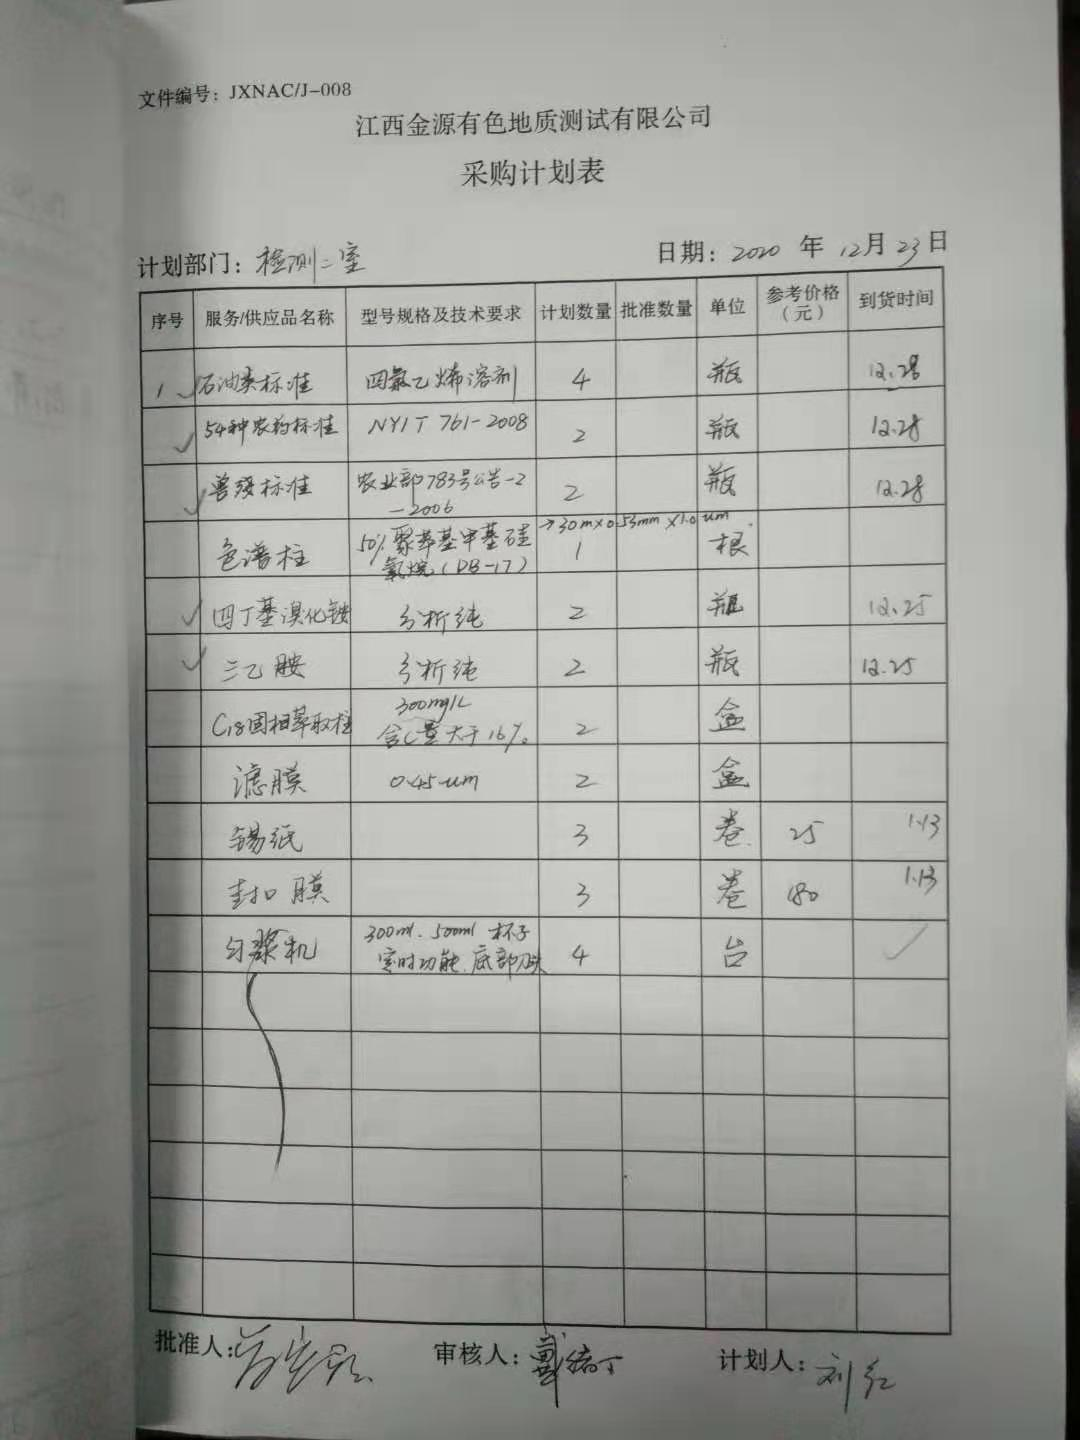 文件编号：JXNAC/J-008
江西金源有色地质测试有限公司
采购计划表
计划部门：检测二室 日期：2020 年 12月 23日
序号 服务/供应品名称 型号规格及技术要求 计划数量 批准数量 单位 参考价格（元） 到货时间
1 ✓ 石油类标准 四氯乙烯溶剂 4 瓶 12.28
✓ 54种农药标准 NY/T 761-2008 2 瓶 12.28
✓ 兽残标准 农业部783号公告-2-2006 2 瓶 12.28
→30m×0.53mm×1.0um
色谱柱 50%聚苯基甲基硅氧烷(DB-17) 1 根
✓ 四丁基溴化铵 分析纯 2 瓶 12.25
✓ 三乙胺 分析纯 2 瓶 12.25
C18固相萃取柱 300mg/L 含C量大于16% 2 盒
滤膜 0.45um 2 盒
锡纸 3 卷 25 1.13
封口膜 3 卷 180 1.13
匀浆机 300ml.500ml 杯子 定时功能.底部刀头 4 台 ✓
批准人： 审核人：戴 计划人：刘红